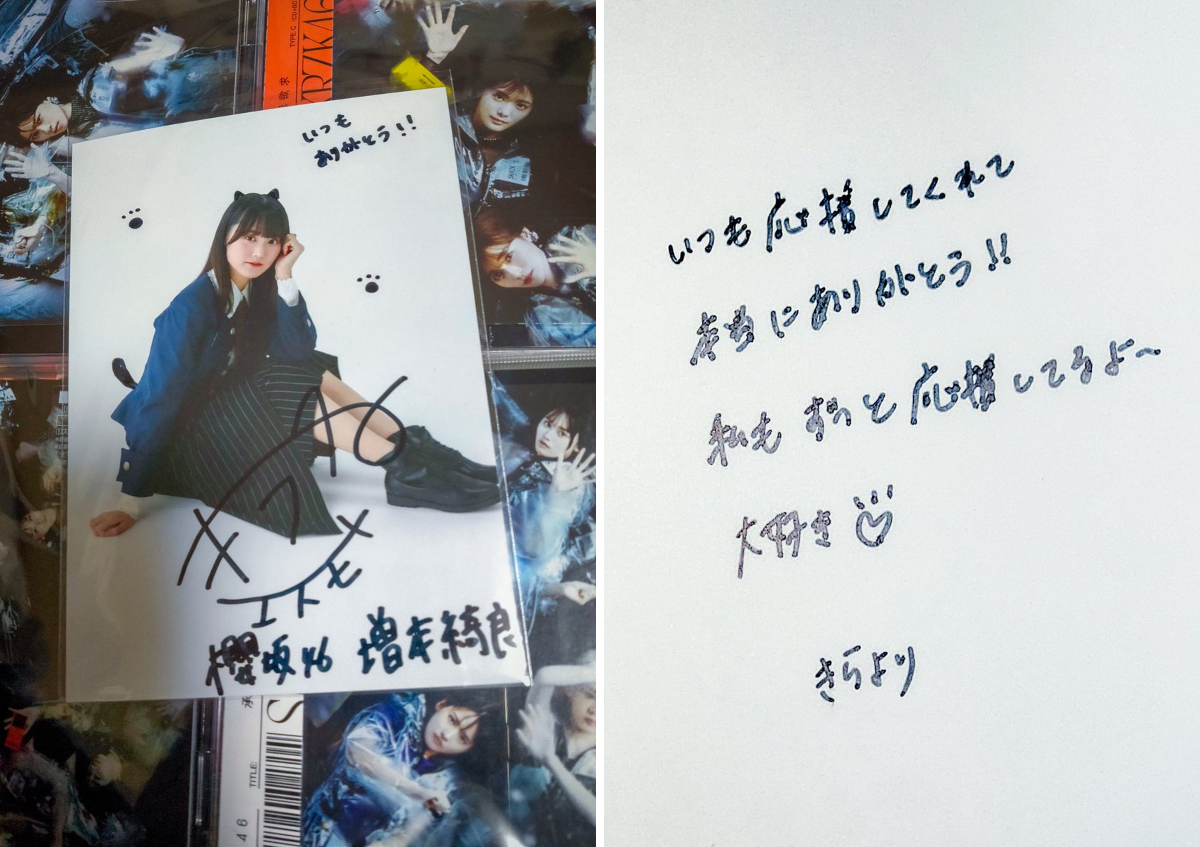 TYPE-C
いつも
ありがとう!!
46
櫻坂46 増本綺良
TITLE:
46
S
いつも応援してくれて
本当にありがとう!!
私もずっと応援してるよ〜
大好き
きらより